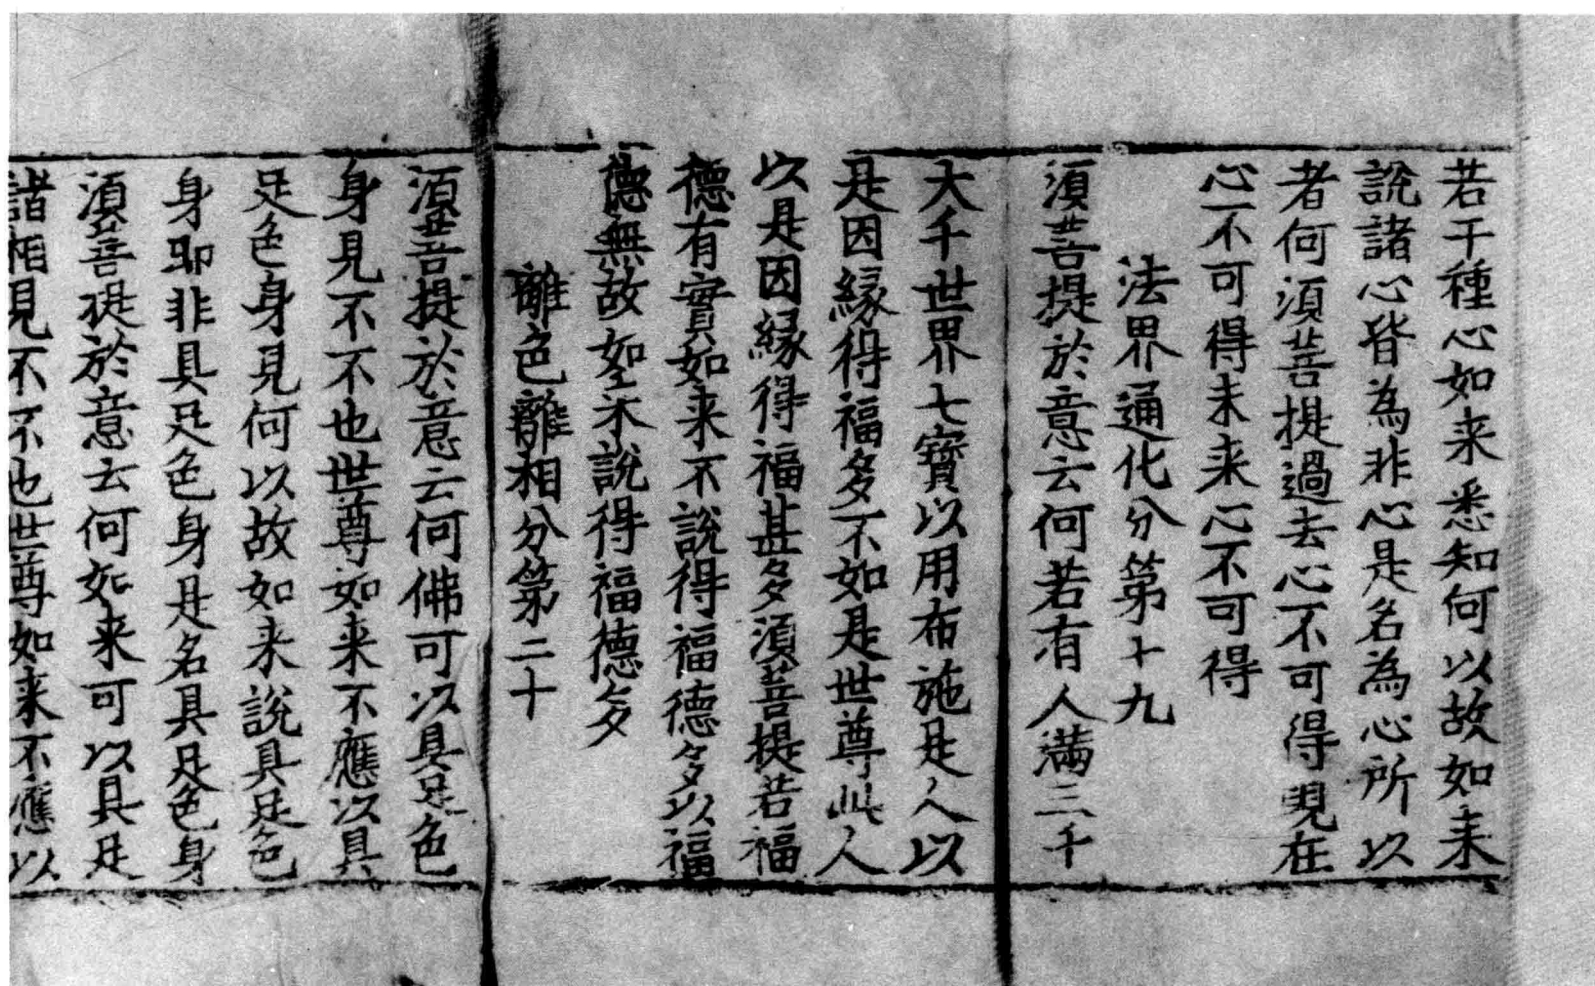 若干種心如来悉知何以故如来
說諸心皆為非心是名為心所以
者何湏菩提過去心不可得現在
心不可得未来心不可得
法界通化分第十九
湏菩提於意云何若有人滿三千
大千世界七寶以用布施是人以
是因緣得福多不如是世尊此人
以是因緣得福甚多湏菩提若福
德有實如来不說得福德多以福
德無故如来說得福德多
離色離相分第二十
湏菩提於意云何佛可以具足色
身見不不也世尊如来不應以具
足色身見何以故如来說具足色
身即非具足色身是名具足色身
湏菩提於意云何如来可以具足
諸相見不不也世尊如来不應以